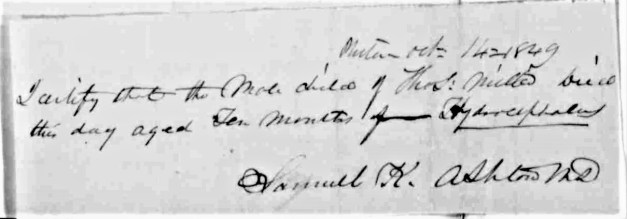 Phila Oct 14 1849
I certify that the Male child of Thos. Miller Died
this day aged Ten Months of Hydrocephalus
Samuel K. Ashton MD